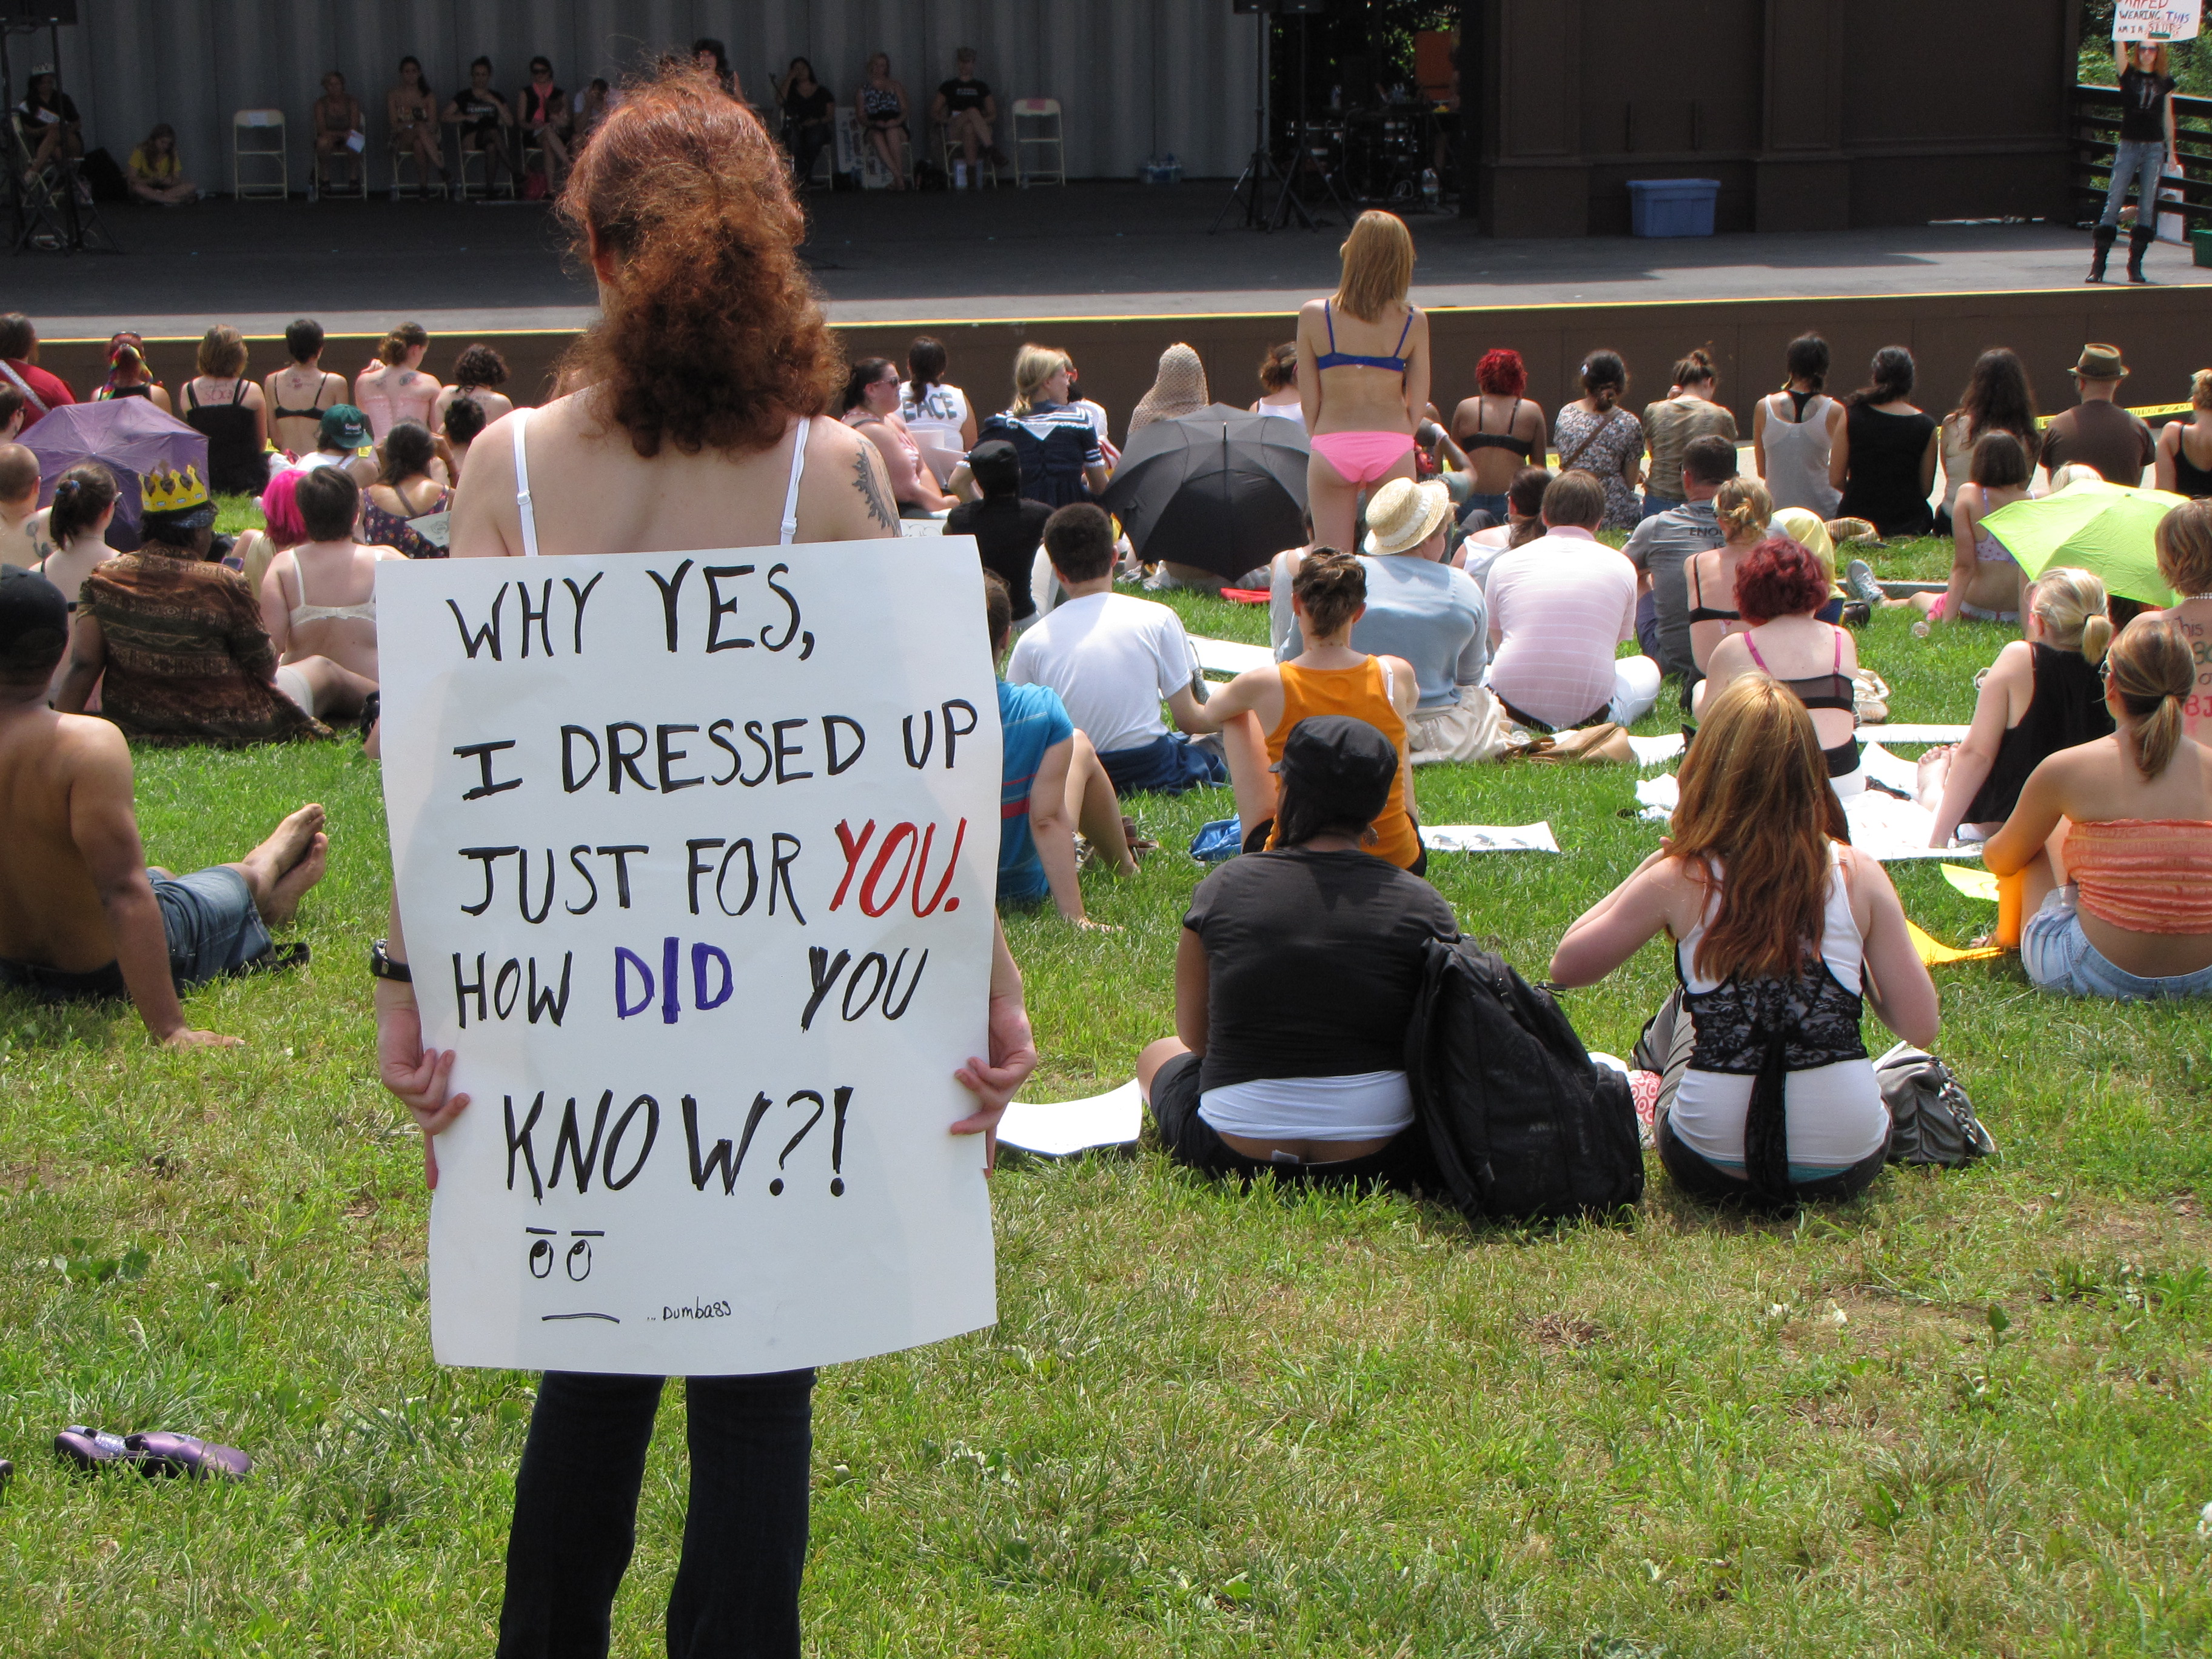 RAPED
WEARING THIS
AM I A SLUT?
PEACE
WHY YES,
I DRESSED UP
JUST FOR YOU.
HOW DID YOU
KNOW?!
... Dumbass
This